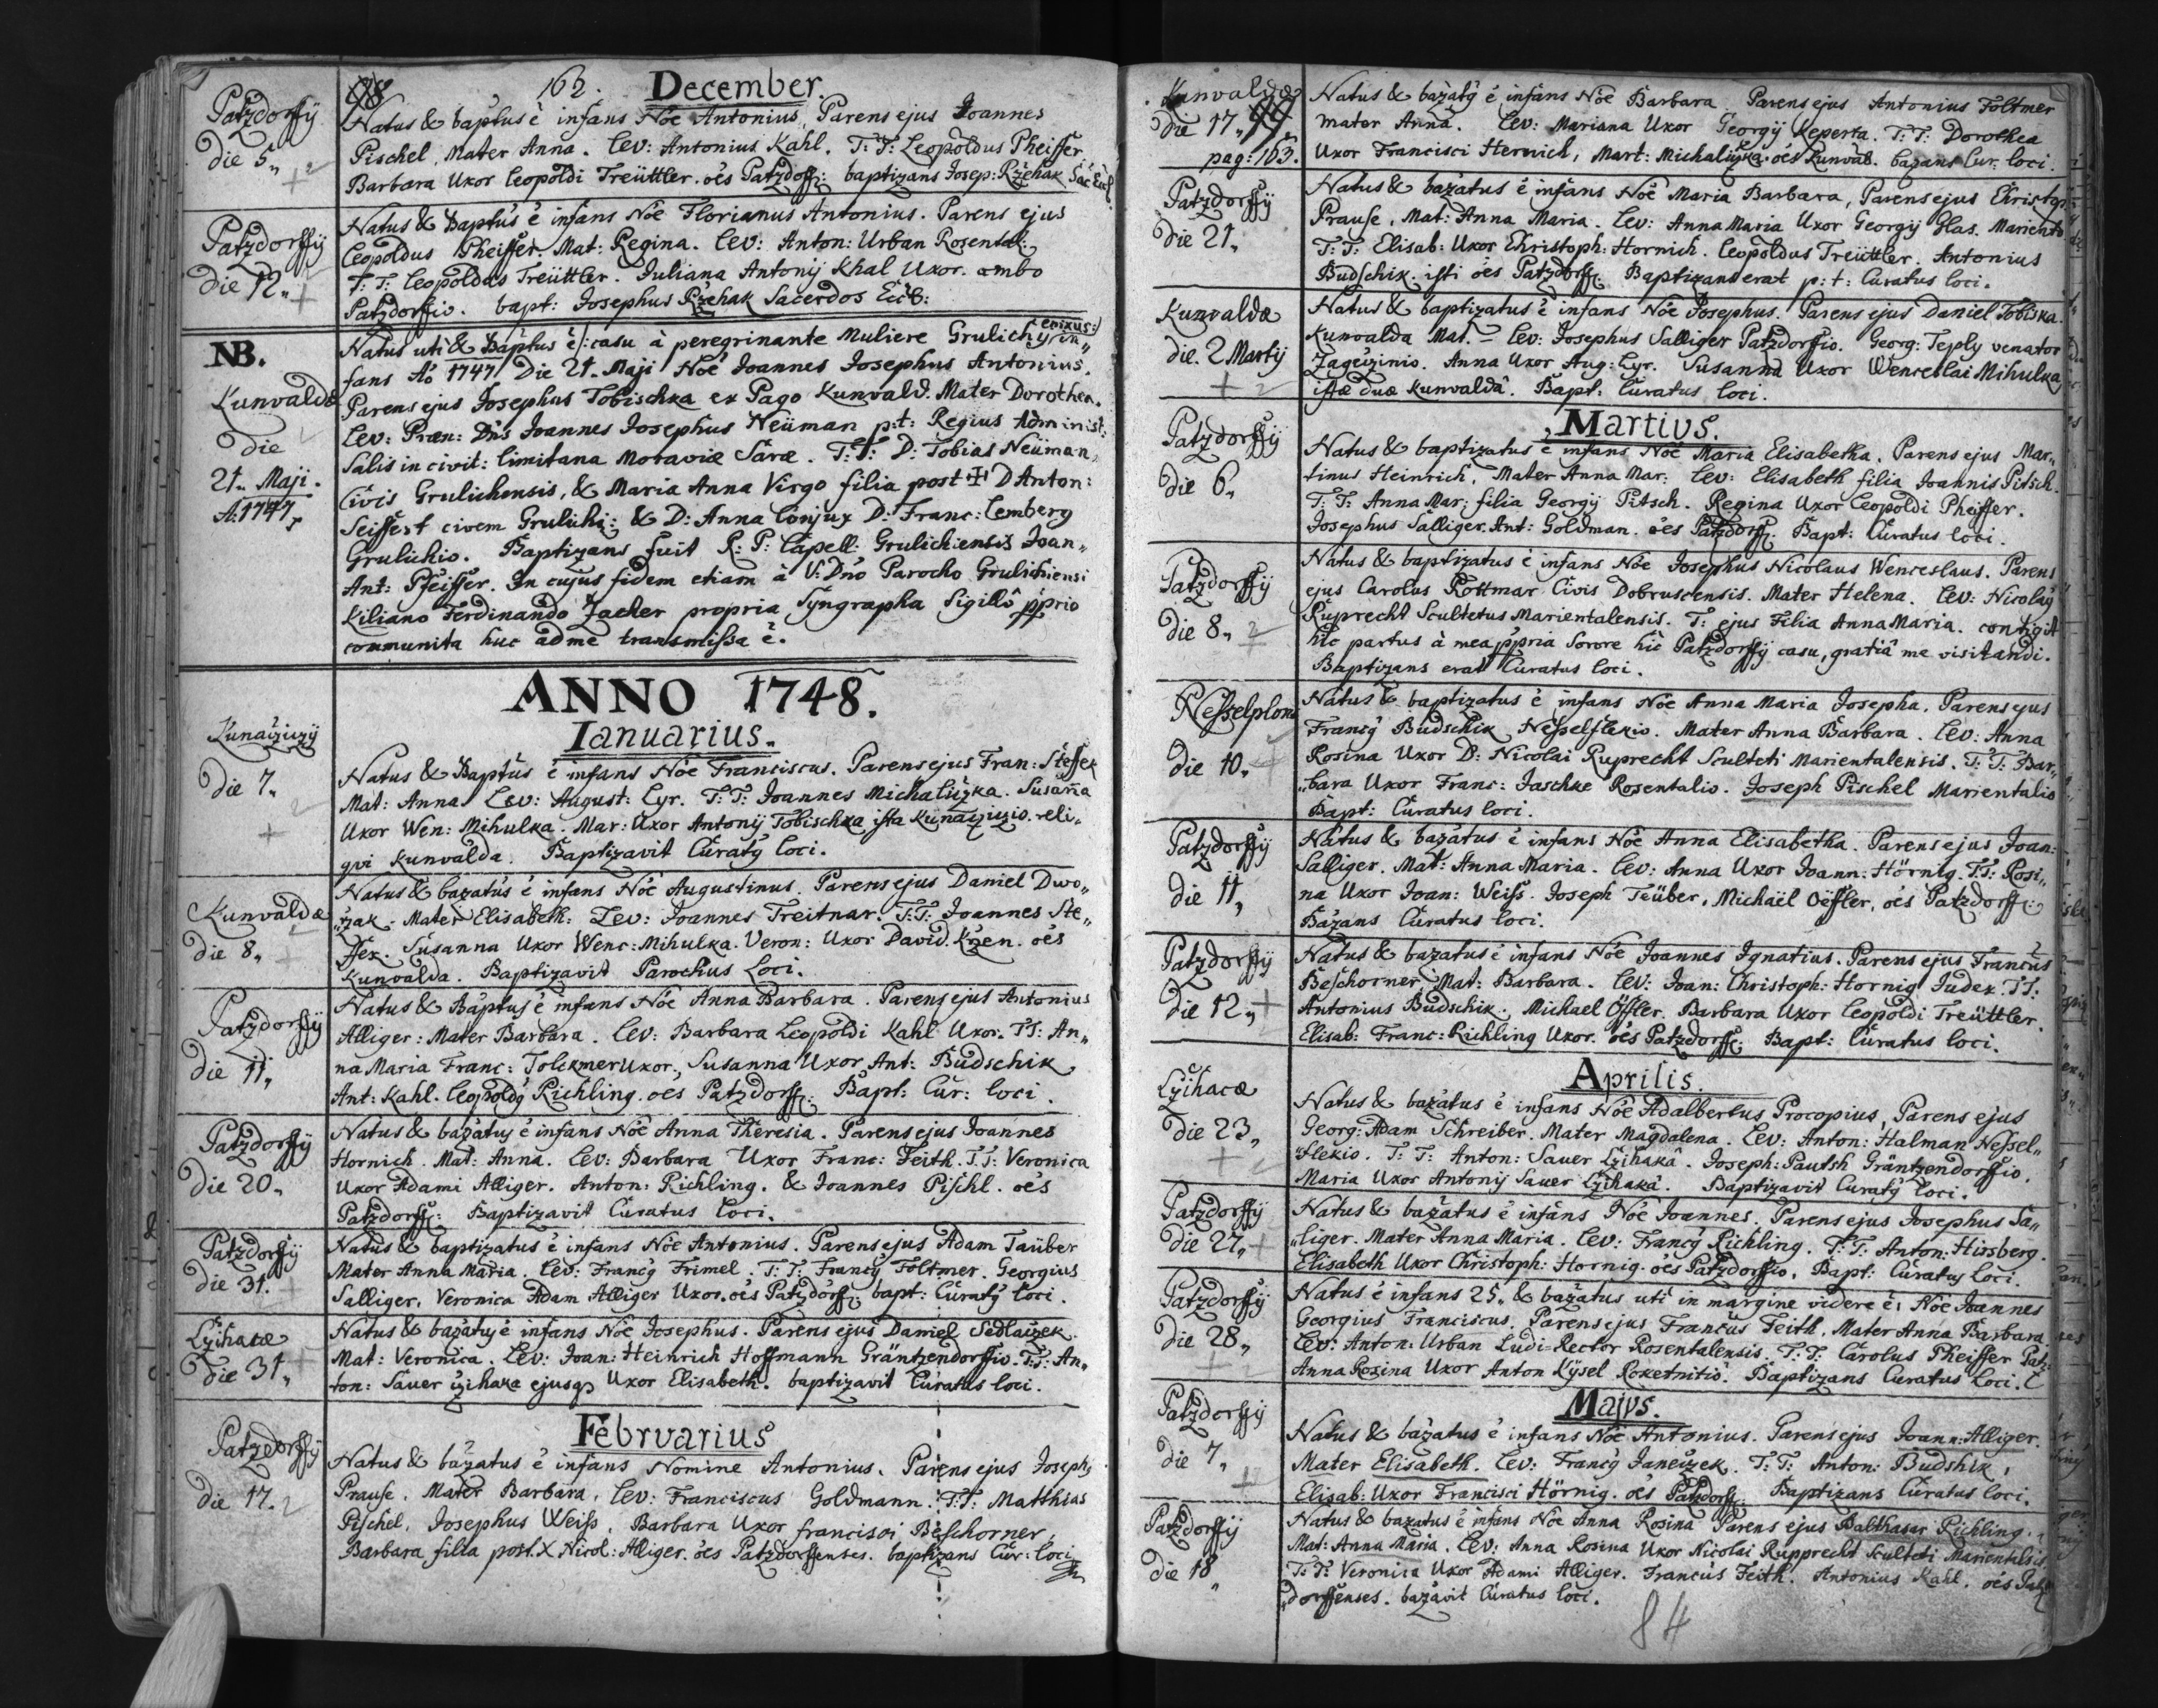 162. December.
Patzdorffij
die 5„
Natus & baptus ē infans Nōe Antonius, Parens ejus Joannes
Pischel, Mater Anna. Lev: Antonius Kahl. T: T: Leopoldus Pheiffer
Barbara Uxor Leopoldi Treüttler. oēs Patzdorff: baptizans Josep: Ržehak Sac: Eccl
Patzdorffij
die 12„
Natus & Baptus ē infans Nōe Florianus Antonius. Parens ejus
Leopoldus Pheiffer. Mat: Regina. Lev: Anton: Urban Rosental:
T: T: Leopoldus Treüttler. Juliana Antonij Khal Uxor. ambo
Patzdorffio. bapt: Josephus Ržehak Sacerdos Eccl:
NB.
Kunvaldæ
die
21„ Maji.
A: 1747
Natus uti & Baptus ē /: casu à peregrinante Muliere Grulichij enixus :/ in„
fans Aō 1747 Die 21. Maji Nōe Joannes Josephus Antonius.
Parens ejus Josephus Tobischka ex Pago Kunvald. Mater Dorothea.
Lev: Præn: Dn̄s Joannes Josephus Neüman p: t: Regius Administ:
Salis in civit: limitana Moraviæ Saræ. T: T: D: Tobias Neüman
Civis Grulichensis, & Maria Anna Virgo filia post ✝ D Anton:
Seiffert civem Grulichi: & D: Anna Conjux D: Franc: Lemberg
Grulichio. Baptizans fuit R: P: Capell: Grulichiensis Joan„
Ant: Pfeiffer. In cujus fidem etiam à V: Dn̄o Parocho Grulichiensi
Kiliano Ferdinando Zacher propria Syngrapha Sigillô p̄prio
communita huc ad me transmissa ē.
ANNO 1748.
Ianuarius.
Kunačiczij
die 7„
Natus & Baptus ē infans Nōe Franciscus. Parens ejus Fran: Steffek
Mat: Anna Lev: August: Lyr. T: T: Joannes Michaliczka. Susaña
Uxor Wen: Mihulka. Mar: Uxor Antonij Tobischka ista Kunacziczio. reli„
qvi Kunvalda. Baptizavit Curatq Loci.
Kunvaldæ
die 8„
Natus & bazatus ē infans Nōe Augustinus. Parens ejus Daniel Dwo„
„rzak. Mater Elisabeth: Lev: Joannes Treitnar. T: T: Joannes Ste„
ffek. Susanna Uxor Wenc: Mihulka. Veron: Uxor David. Kržen. oēs
Kunvalda. Baptizavit Parochus Loci.
Patzdorffij
die 11„
Natus & Baptus ē infans Nōe Anna Barbara. Parens ejus Antonius
Alliger: Mater Barbara. Lev: Barbara Leopoldi Kahl Uxor. T: T: An„
na Maria Franc: Folckmer Uxor, Susanna Uxor Ant: Budschik
Ant: Kahl. Leopoldq Richling. oēs Patzdorff: Bapt: Cur: Loci.
Patzdorffij
Die 20„
Natus & bazatus ē infans Nōe Anna Theresia. Parens ejus Joannes
Hornich. Mat: Anna. Lev: Barbara Uxor Franc: Feith. T: T: Veronica
Uxor Adami Alliger. Anton: Richling. & Joannes Pischl. oēs
Patzdorff: Baptizavit Curatus Loci.
Patzdorffij
die 31.
Natus & baptizatus ē infans Nōe Antonius. Parens ejus Adam Taüber
Mater Anna Maria. Lev: Francq Frimel. T: T: Francq Foltmer. Georgius
Salliger. Veronica Adam Alliger Uxor. oēs Patzdorff: bapt: Curatq Loci.
Lžihacæ
Die 31„
Natus & bazatus ē infans Nōe Josephus. Parens ejus Daniel Sedlaczek.
Mat: Veronica. Lev: Joan: Heinrich Hoffmann Gräntzendorffio. T: T: An„
ton: Sauer Lžihaka ejusq Uxor Elisabeth. baptizavit Curatus Loci.
Februarius
Patzdorffij
die 17„
Natus & bazatus ē infans Nomine Antonius. Parens ejus Josephq
Prause. Mater Barbara. Lev: Franciscus Goldmann. T: T: Matthias
Pischel. Josephus Weiss. Barbara Uxor francisci Beschorner.
Barbara filia post. X Nicol: Alliger. oēs Patzdorffenses. baptizans Cur: Loci
Kunvaldæ
Die 17„
pag: 163.
Natus & bazatq ē infans Nōe Barbara. Parens ejus Antonius Foltmer
mater Anna. Lev: Mariana Uxor Georgij Keperta. T: T: Dorothea
Uxor Francisci Herwich, Mart: Michaliczka. oēs Kunvald. bazans Cur: Loci.
Patzdorffij
die 21„
Natus & bazatus ē infans Nōe Maria Barbara, Parens ejus Christop
Prause. Mat: Anna Maria. Lev: Anna Maria Uxor Georgij Glas. Marient
T: T: Elisab: Uxor Christoph: Hornich. Leopoldus Treüttler. Antonius
Budschik. isti oēs Patzdorff: Baptizans erat p: t: Curatus Loci.
Kunvaldæ
die. 2 Martij
Natus & baptizatus ē infans Nōe Josephus. Parens ejus Daniel Tobiska.
Kunvalda Mat. – Lev: Josephus Salliger Patzdorffio. Georg: Teply venator
Zagezinio. Anna Uxor Aug: Lyr. Susanna Uxor Wenceslai Mihulka
istæ duæ Kunvaldâ. Bapt: Curatus Loci.
Martius.
Patzdorffij
die 6„
Natus & baptizatus ē infans Nōe Maria Elisabetha. Parens ejus Mar„
tinus Heinrich, Mater Anna Mar: Lev: Elisabeth filia Joannis Pitsch.
T: T: Anna Mar: filia Georgij Pitsch. Regina Uxor Leopoldi Pheiffer.
Josephus Salliger. Ant: Goldman. oēs Patzdorff: Bapt: Curatus Loci.
Patzdorffij
die 8„
Natus & baptizatus ē infans Nōe Josephus Nicolaus Wenceslaus. Parens
ejus Carolus Rottmar Civis Dobruscensis. Mater Helena. Lev: Nicolaq
Ruprecht Scultetus Marientalensis. T: ejus Filia Anna Maria. contigit
hic partus à mea p̄pria Sorore hîc Patzdorffij casu, gratiâ me visitandi.
Baptizans erat Curatus Loci.
Nesselplon
die 10„
Natus & baptizatus ē infans Nōe Anna Maria Josepha, Parens ejus
Francq Budschik Nesselflekio. Mater Anna Barbara. Lev: Anna
Rosina Uxor D: Nicolai Ruprecht Sculteti Marientalensis. T: T: Bar„
„bara Uxor Franc: Jaschke Rosentalio. Joseph Pischel Marientalio
Bapt: Curatus Loci.
Patzdorffij
die 11„
Natus & bazatus ē infans Nōe Anna Elisabetha. Parens ejus Joan:
Salliger. Mat: Anna Maria. Lev: Anna Uxor Joann: Hörnig. T: T: Rosi„
na Uxor Joan: Weiss. Joseph Teüber, Michaël Oëffler, oēs Patzdorff:
Bazans Curatus Loci.
Patzdorffij
die 12„
Natus & bazatus ē infans Nōe Joannes Ignatius. Parens ejus Francūs
Beschorner, Mat: Barbara. Lev: Joan: Christoph: Hornig Judex. T: T:
Antonius Budschik. Michael Öffler. Barbara Uxor Leopoldi Treüttler.
Elisab: Franc: Richling Uxor. oēs Patzdorff: Bapt: Curatus Loci.
Aprilis.
Lžihacæ
die 23„
Natus & bazatus ē infans Nōe Adalbertus Procopius, Parens ejus
Georg: Adam Schreiber. Mater Magdalena. Lev: Anton: Halman Nessel„
„flekio. T: T: Anton: Sauer Lžihakâ. Joseph: Pautsh Gräntzendorffio.
Maria Uxor Antonij Sauer Lžihakâ. Baptizavit Curatq Loci.
Patzdorffij
die 27„
Natus & bazatus ē infans Nōe Joannes. Parens ejus Josephus Sa„
„liger. Mater Anna Maria. Lev: Francq Richling. T: T: Anton: Hirsberg.
Elisabeth Uxor Christoph: Hornig. oēs Patzdorffio. Bapt: Curatus Loci.
Patzdorffij
die 28„
Natus ē infans 25„ & bazatus uti in margine videre ē, Nōe Joannes
Georgius Franciscus. Parens ejus Francūs Feith. Mater Anna Barbara
Lev: Anton: Urban Ludi-Rector Rosentalensis. T: T: Carolus Pheiffer Patz:
Anna Rosina Uxor Anton Kÿsel Roketnitiô. Baptizans Curatus Loci.
Majus.
Patzdorffij
die 7„
Natus & bazatus ē infans Nōe Antonius. Parens ejus Joann: Alliger.
Mater Elisabeth. Lev: Francq Janeczek. T: T: Anton: Budshik,
Elisab: Uxor Francisci Hörnig. oēs Patzdorff: Baptizans Curatus Loci.
Patzdorffij
die 18„
Natus & bazatus ē infans Nōe Anna Rosina Parens ejus Balthasar Richling.
Mat: Anna Maria. Lev: Anna Rosina Uxor Nicolai Rupprecht Sculteti Marientalsis
T: T: Veronica Uxor Adami Alliger. Francūs Feith. Antonius Kahl. oēs Patz
„dorffenses. bazavit Curatus Loci.
84